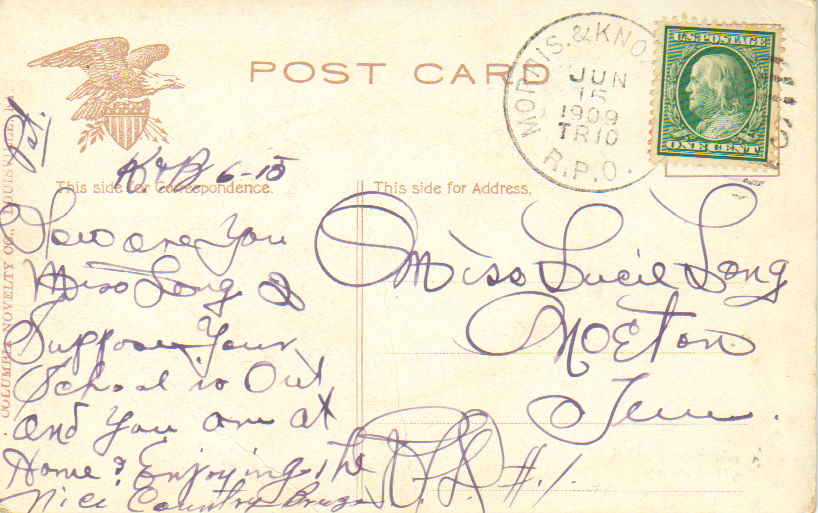 POST CARD
MORRIS. & KNO
JUN
15
1909
TR10
R.P.O.
U.S. POSTAGE
ONE CENT
6-15
This side for Correspondence.
This side for Address.
COLUMBIA NOVELTY CO., LOUISVILLE
How are You
Miss Long I
Suppose Your
School is Out
and You are at
Home & Enjoying the
Nice Country Breeze
Miss Lucile Long
Tenn.
#1